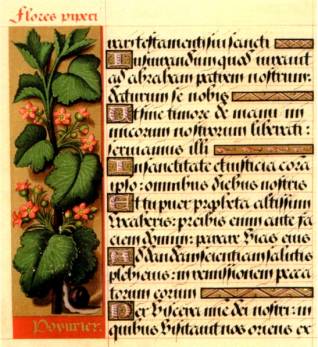 Flores piperi
rari testamenti sui sancti
Iusiurandum quod iuravit
ad abraham patrem nostrum:
daturum se nobis
Ut sine timore de manu ini
micorum nostrorum liberati:
serviamus illi
In sanctitate et iusticia corā
ipso: omnibus diebus nostris
Et tu puer propheta altissimi
vocaberis: preibis enim ante fa
ciem domini: parare vias eius
Ad dandam scientiam salutis
plebi eius: in remissionem pecca
torum eorum
Per viscera mīe dei nostri: in
quibus visitavit nos oriens ex
Poyurier.